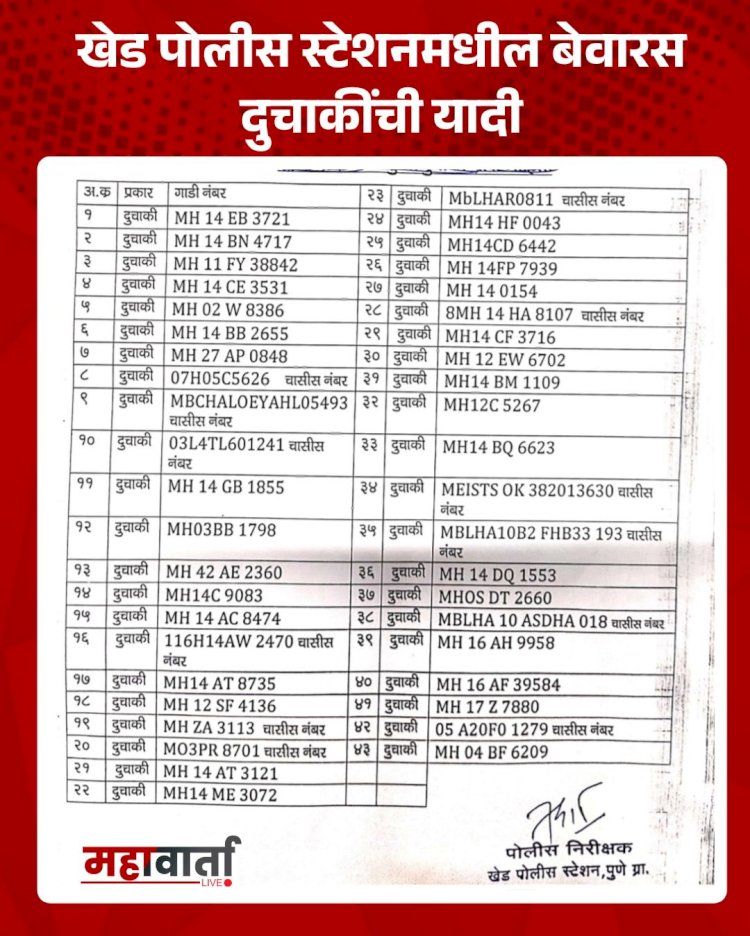 खेड पोलीस स्टेशनमधील बेवारस
दुचाकींची यादी
अ.क्र प्रकार गाडी नंबर
१ दुचाकी MH 14 EB 3721
२ दुचाकी MH 14 BN 4717
३ दुचाकी MH 11 FY 38842
४ दुचाकी MH 14 CE 3531
५ दुचाकी MH 02 W 8386
६ दुचाकी MH 14 BB 2655
७ दुचाकी MH 27 AP 0848
८ दुचाकी 07H05C5626 चासीस नंबर
९ दुचाकी MBCHALOEYAHL05493
चासीस नंबर
१० दुचाकी 03L4TL601241 चासीस
नंबर
११ दुचाकी MH 14 GB 1855
१२ दुचाकी MH03BB 1798
१३ दुचाकी MH 42 AE 2360
१४ दुचाकी MH14C 9083
१५ दुचाकी MH 14 AC 8474
१६ दुचाकी 116H14AW 2470 चासीस
नंबर
१७ दुचाकी MH14 AT 8735
१८ दुचाकी MH 12 SF 4136
१९ दुचाकी MH ZA 3113 चासीस नंबर
२० दुचाकी MO3PR 8701 चासीस नंबर
२१ दुचाकी MH 14 AT 3121
२२ दुचाकी MH14 ME 3072
२३ दुचाकी MbLHAR0811 चासीस नंबर
२४ दुचाकी MH14 HF 0043
२५ दुचाकी MH14CD 6442
२६ दुचाकी MH 14FP 7939
२७ दुचाकी MH 14 0154
२८ दुचाकी 8MH 14 HA 8107 चासीस नंबर
२९ दुचाकी MH14 CF 3716
३० दुचाकी MH 12 EW 6702
३१ दुचाकी MH14 BM 1109
३२ दुचाकी MH12C 5267
३३ दुचाकी MH14 BQ 6623
३४ दुचाकी MEISTS OK 382013630 चासीस
नंबर
३५ दुचाकी MBLHA10B2 FHB33 193 चासीस
नंबर
३६ दुचाकी MH 14 DQ 1553
३७ दुचाकी MHOS DT 2660
३८ दुचाकी MBLHA 10 ASDHA 018 चासीस नंबर
३९ दुचाकी MH 16 AH 9958
४० दुचाकी MH 16 AF 39584
४१ दुचाकी MH 17 Z 7880
४२ दुचाकी 05 A20F0 1279 चासीस नंबर
४३ दुचाकी MH 04 BF 6209
पोलीस निरीक्षक
खेड पोलीस स्टेशन,पुणे ग्रा.
महावार्ता
LIVE